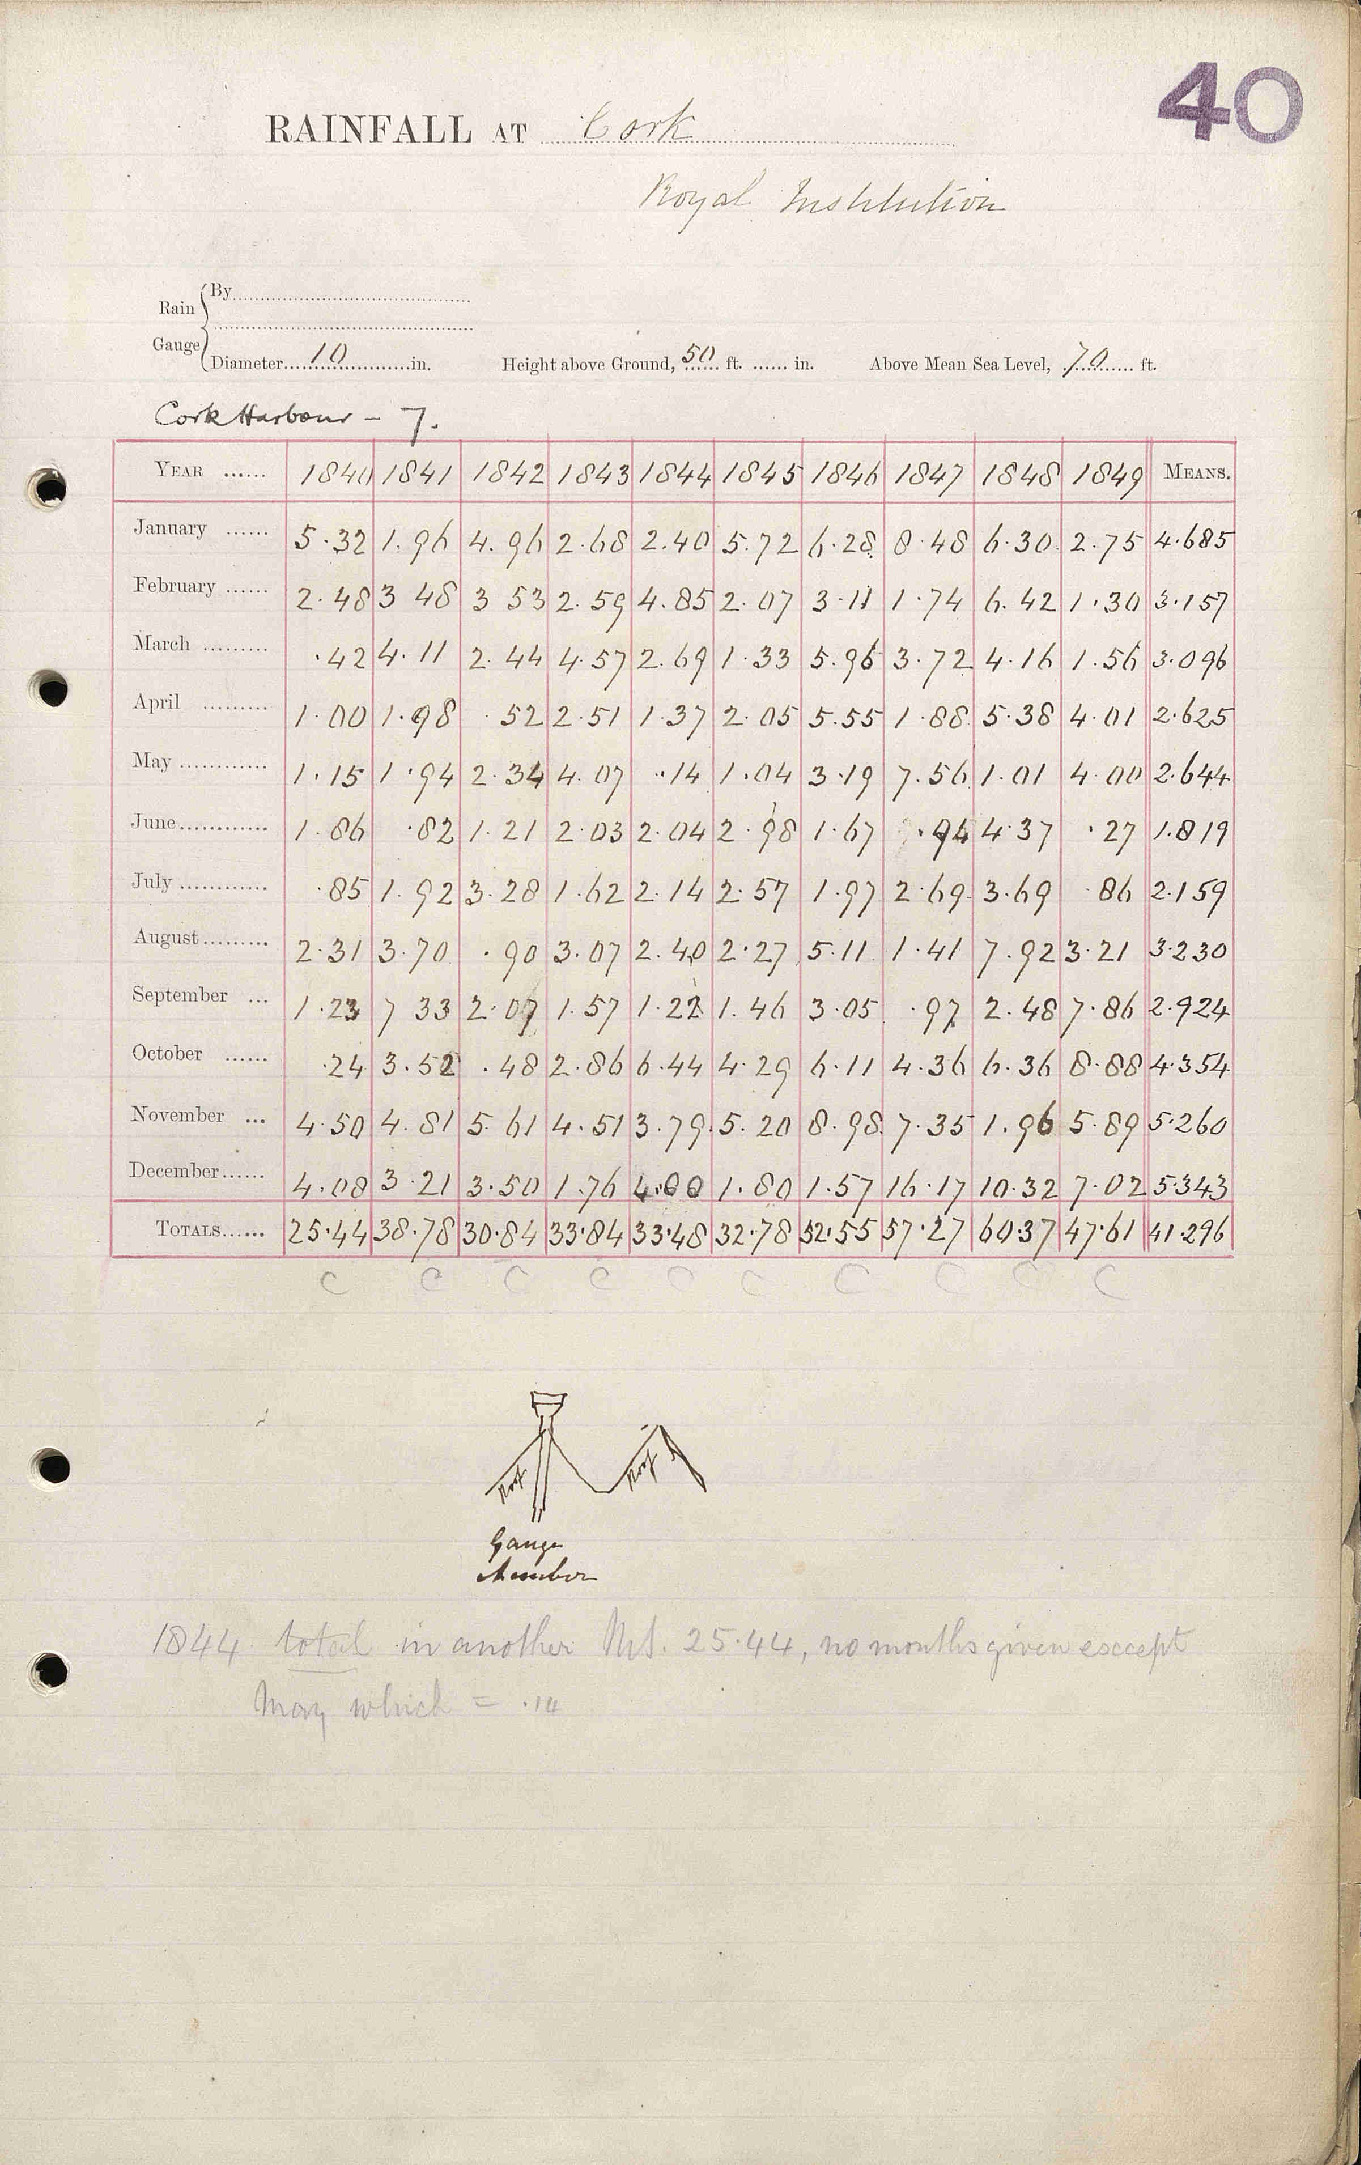 40
RAINFALL AT Cork
Royal Institution
Rain Gauge { By
Diameter 10 in. Height above Ground, 50 ft. in. Above Mean Sea Level, 70 ft.
Cork Harbour - 7.
YEAR 1840 1841 1842 1843 1844 1845 1846 1847 1848 1849 MEANS.
January 5.32 1.96 4.96 2.68 2.40 5.72 6.28 8.48 6.30 2.75 4.685
February 2.48 3 48 3 53 2.59 4.85 2.07 3.11 1.74 6.42 1.30 3.157
March .42 4.11 2.44 4.57 2.69 1.33 5.96 3.72 4.16 1.56 3.096
April 1.00 1.98 .52 2.51 1.37 2.05 5.55 1.88 5.38 4.01 2.625
May 1.15 1.94 2.34 4.07 .14 1.04 3.19 7.56 1.01 4.00 2.644
June 1.86 .82 1.21 2.03 2.04 2.98 1.67 .94 4.37 .27 1.819
July .85 1.92 3.28 1.62 2.14 2.57 1.97 2.69 3.69 .86 2.159
August 2.31 3.70 .90 3.07 2.40 2.27 5.11 1.41 7.92 3.21 3.230
September 1.23 7 33 2.07 1.57 1.22 1.46 3.05 .97 2.48 7.86 2.924
October .24 3.52 .48 2.86 6.44 4.29 6.11 4.36 6.36 8.88 4.354
November 4.50 4.81 5.61 4.51 3.79 5.20 8.98 7.35 1.96 5.89 5.260
December 4.08 3.21 3.50 1.76 4.00 1.80 1.57 16.17 10.32 7.02 5.343
TOTALS 25.44 38.78 30.84 33.84 33.48 32.78 52.55 57.27 60.37 47.61 41.296
C C C C C C C C C C
Roof Roof
Gauge
Chamber
1844 total in another MS. 25.44, no months given except
May which = .14